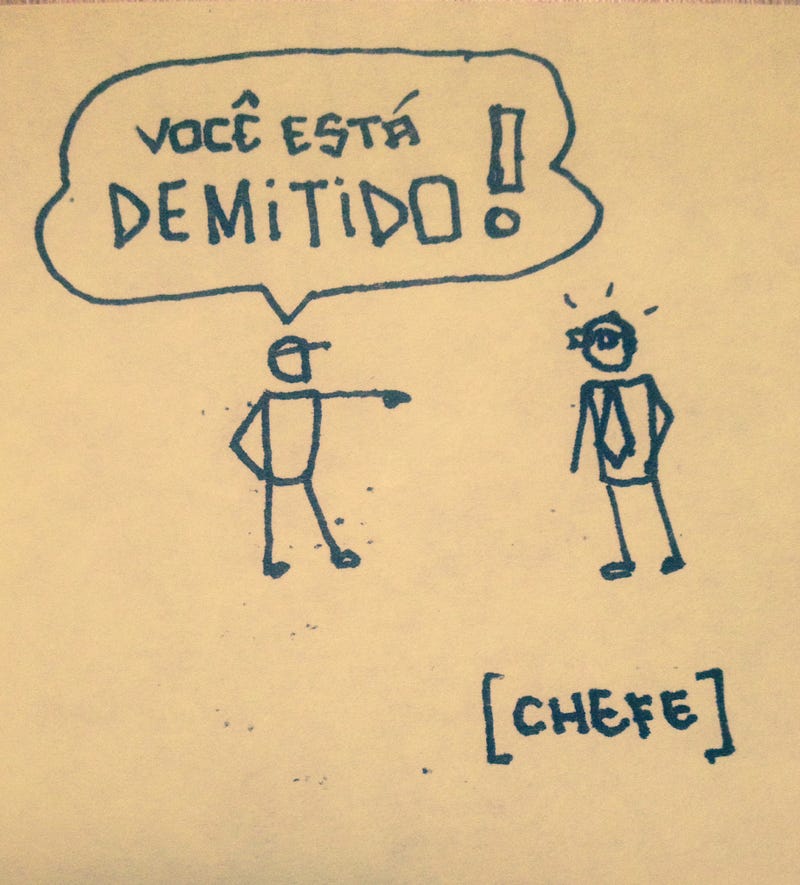 VOCÊ ESTÁ
DEMITIDO!
[CHEFE]